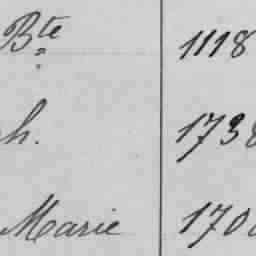 Bte 1118
h. 1738
Marie 170